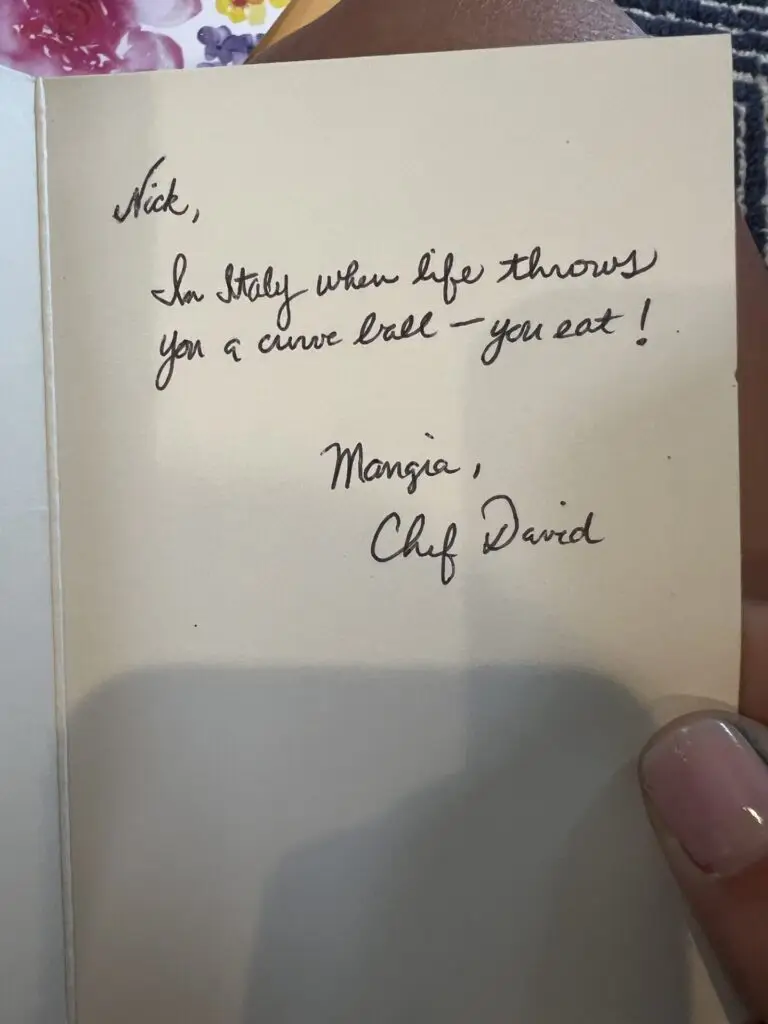 Nick,
In Italy when life throws
you a curve ball – you eat!
Mangia,
Chef David